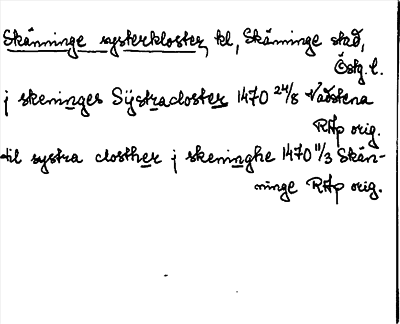 Skänninge systerkloster, kl, Skänninge stad,
Östg. l.
j skeninges Sÿstracloster 1470 24/8 Vadstena
RAp orig.
til systra closther j skeninghe 1470 11/3 Skän-
ninge RAp orig.